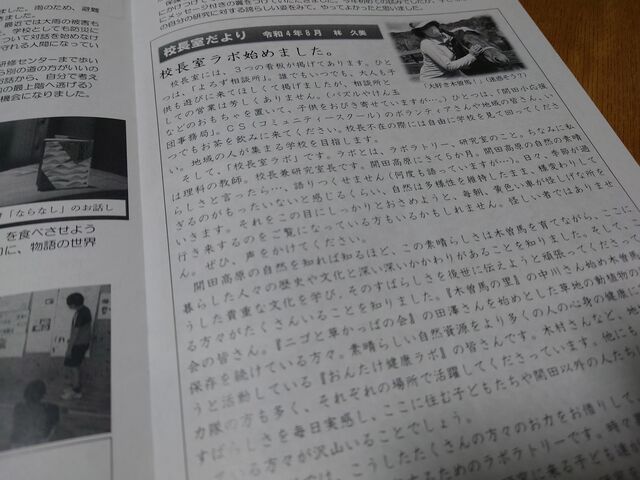 ました。雨のため、避難
きました。
最近では大雨の被害も
。学校としても防災に
ついて対話を始めなけ
守れる人間になってい
研修センターまで歩い
ら別の道の方がいいの
お話から、自分で考え
の最上階へ逃げる)
機会になりました。
「ならなし」のお話し
を食べさせよう
に、物語の世界
にメッセージ付きの賞をつけていただきました。
の自分の研究に対する誇らしい姿をみて、やってよかったと思いました。
校長室だより 令和4年8月 林 久美
校長室ラボ始めました。
「大好き木曽馬!」(迷惑そう?)
校長室には、3つの看板が掲げてあります。ひと
つは、「よろず相談所」。誰でもいつでも、大人も子
供も遊びに来てほしくて掲げましたが、相談所と
しての営業は芳しくありません。(パズルやけん玉
などのおもちゃを置いて、子供をおびき寄せていますが…。)ひとつは、「開田小応援
団事務局」。CS(コミュニティースクール)のボランティアさんや地域の皆さん、い
つでもお茶を飲みに来てください。校長不在の際には自由に学校を見て回ってくださ
い。地域の人が集まる学校を目指します。
そして、「校長室ラボ」です。ラボとは、ラボラトリー、研究室のこと。ちなみに私
は理科の教師。校長兼研究室長です。開田高原にきて5か月。開田高原の自然の素晴
らしさと言ったら…、語りつくせません(何度も語っていますが…)。日々、季節が過
ぎるのがもったいないと感じるくらい、自然は多様性を維持したまま、様変わりして
いきます。それをこの目にしっかりとおさめようと、毎朝、黄色い車が怪しげな所を
行き来するのをご覧になっている方もいるかもしれません。怪しい者ではありませ
ん。ぜひ、声をかけてください。
開田高原の自然を知れば知るほど、この素晴らしさは木曽馬を育てながら、ここに
暮らした人々の歴史や文化と深い深いかかわりがあることを知りました。そして、こ
うした貴重な文化を学び、そのすばらしさを後世に伝えようと頑張ってくださってい
る方々がたくさんいることを知りました。『木曽馬の里』の中川さん始め木曽馬
会の皆さん。『ニゴと草かっぱの会』の田澤さんを始めとした草地の動植物の
保存を続けている方々。素晴らしい自然資源をより多くの人の心身の健康に
うと活動している『おんたけ健康ラボ』の皆さんです。木村さんなど、地
力隊の方も多く、それぞれの場所で活躍してくださっています。他にも
すばらしさを毎日実感し、ここに住む子どもたちや開田以外の人たち
る方々が沢山いることでしょう。
では、こうしたたくさんの方々のお力をお借りして
するためのラボラトリーです。時々